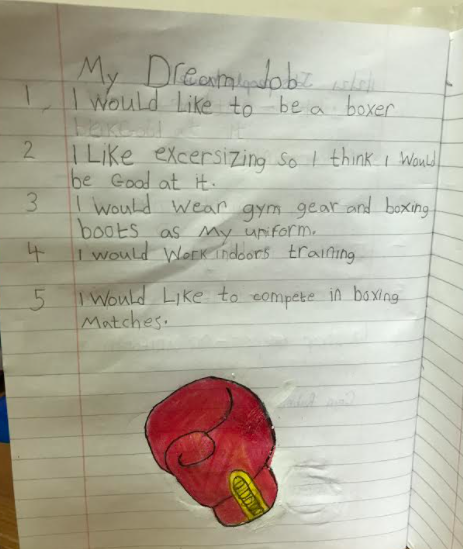 My Dream Job
1. I would Like to be a boxer
2 I Like excersizing so I think I Would
be Good at it.
3 I would wear gym gear and boxing
boots as My uniform.
4 I would Work indoors training
5 I Would Like to compete in boxing
Matches.